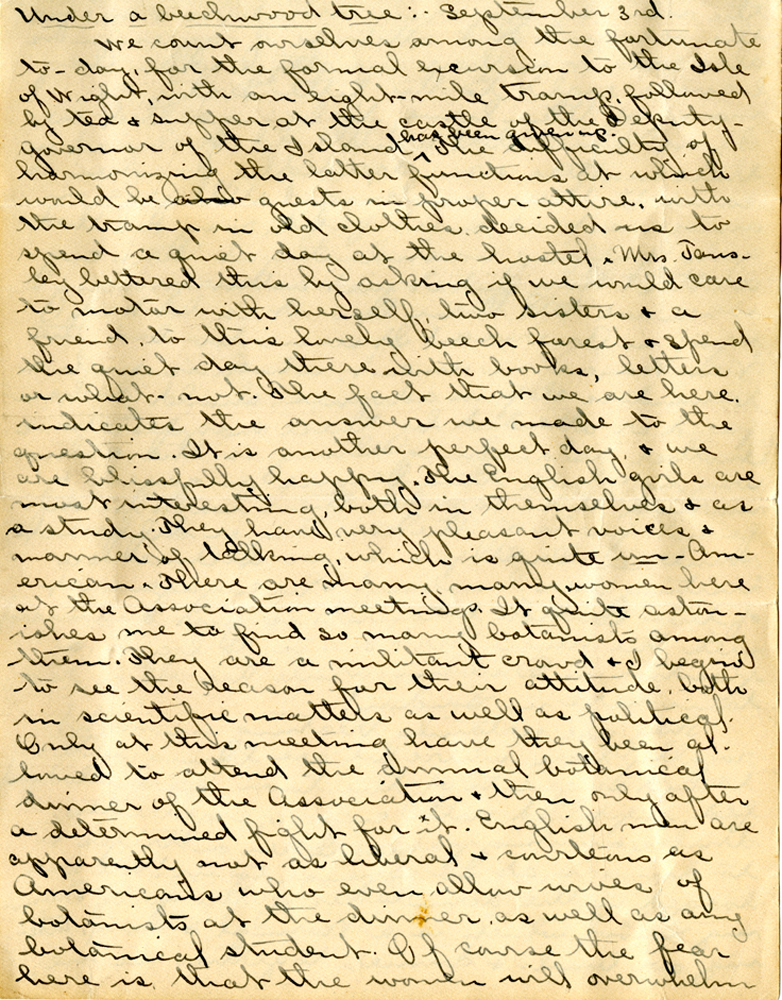 Under a beechwood tree:- September 3rd.
We count ourselves among the fortunate
to-day, for the formal excursion to the Isle
of Wight, with an eight-mile tramp, followed
by tea & supper at the castle of the Deputy-
governor of the Island has been given up. The difficulty of
harmonizing the latter functions at which
would be also guests in proper attire, with
the tramp in old clothes, decided us to
spend a quiet day at the hostel. Mrs. Tans-
ley bettered this by asking if we would care
to motor with herself, two sisters & a
friend, to this lovely beech forest & spend
the quiet day there with books, letters
or what-not. The fact that we are here,
indicates the answer we made to the
question. It is another perfect day, & we
are blissfully happy. The English girls are
most interesting, both in themselves & as
a study. They have very pleasant voices &
manner of talking, which is quite un-Am-
erican. There are many, many women here
at the Association meetings. It quite aston-
ishes me to find so many botanists among
them. They are a militant crowd & I begin
to see the reason for their attitude, both
in scientific matters as well as political.
Only at this meeting have they been al-
lowed to attend the annual botanical
dinner of the Association & then only after
a determined fight for it. English men are
apparently not as liberal & courteous as
Americans who even allow wives of
botanists at the dinner, as well as any
botanical student. Of course the fear
here is that the women will overwhelm